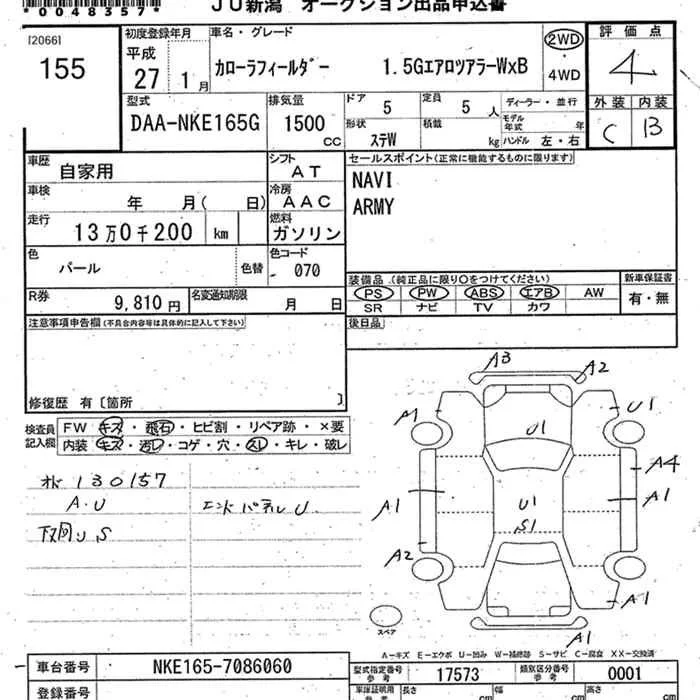 *00483577*
JU新潟 オークション出品申込書
[2066]
155
初度登録年月
平成
27 1月
車名・グレード
カローラフィールダー 1.5GエアロツアラーWxB
2WD
・
4WD
評価点
4
外装 内装
C B
型式
DAA-NKE165G
排気量
1500
CC
ドア
5
定員
5人
形状
ステW
積載
kg
ディーラー・並行
モデル年式 年
ハンドル 左・右
車歴
自家用
シフト
AT
車検
年 月( 日)
冷房
AAC
走行
13万0千200 km
燃料
ガソリン
色
パール
色替
色コード
070
R券
9,810円
名変通知期限
月 日
セールスポイント(正常に機能するものに限ります)
NAVI
ARMY
装備品(純正品に限り○をつけてください)
新車保証書
PS PW ABS エアB AW
SR ナビ TV カワ
有・無
後日品
注意事項申告欄(不具合内容等は具体的に記入して下さい)
修復歴 有〔箇所 〕
検査員記入欄
FW キズ・飛石・ヒビ割・リペア跡・×要
内装 キズ・汚レ・コゲ・穴・スレ・キレ・破レ
130157
A.U
エンドパネルU
下回リS
A3
A2
A1
U1
U1
A4
A1
A1
U1
S1
A2
A1
A1
スペア
A-キズ E-エクボ U-凹み W-補修跡 S-サビ C-腐食 XX-交換済
車台番号
NKE165-7086060
型式指定番号
参考
17573
類別区分番号
参考
0001
登録番号
車庫証明用
参考
長さ
cm
幅
cm
高さ
cm